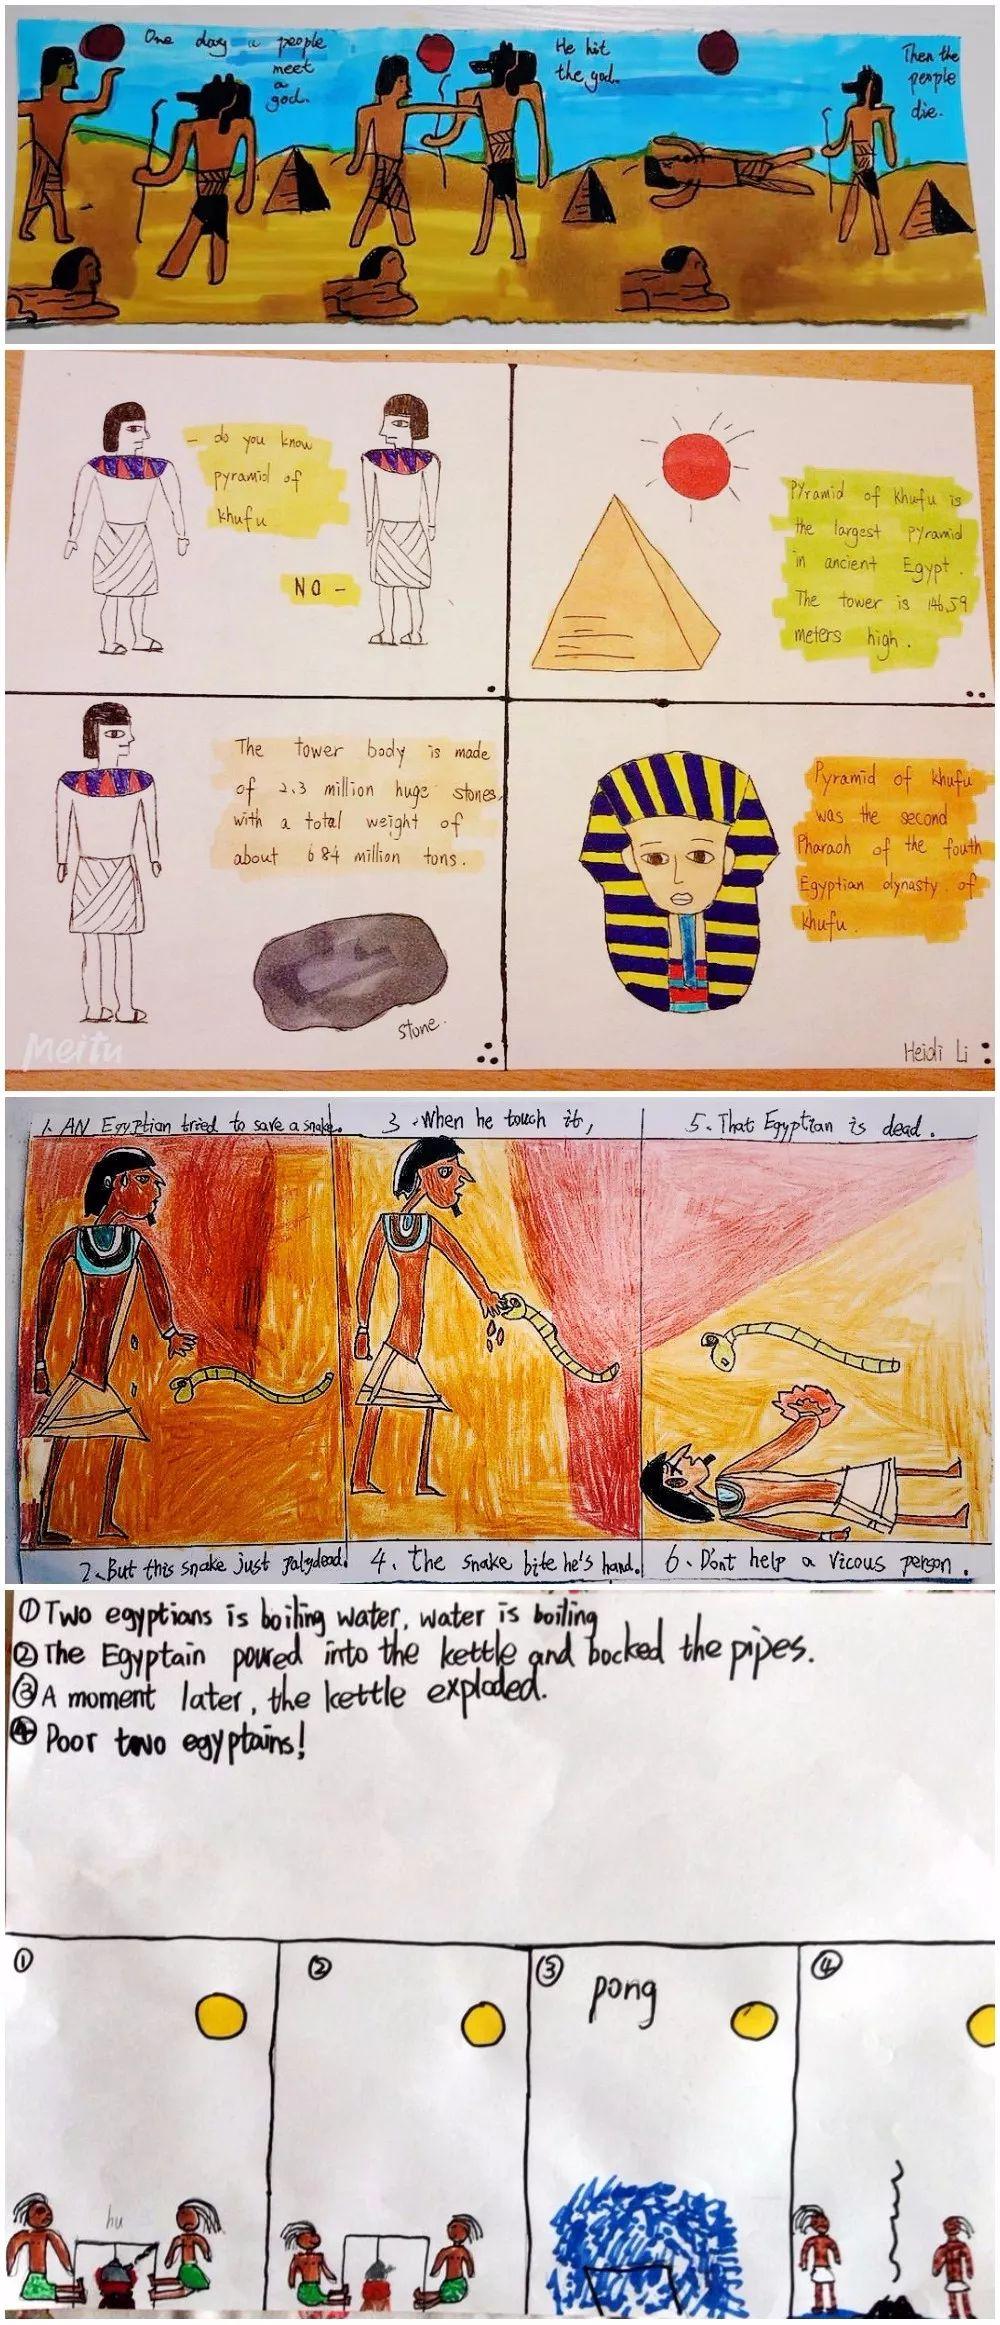 One day a people
meet
a
god.
He hit
the god.
Then the
people
die.
- do you know
pyramid of
khufu
NO -
Pyramid of khufu is
the largest pyramid
in ancient Egypt.
The tower is 146.59
meters high.
The tower body is made
of 2.3 million huge stones,
with a total weight of
about 684 million tons.
stone.
Meitu
Pyramid of khufu
was the second
Pharaoh of the fouth
Egyptian dynasty of
khufu.
Heidi Li
1. AN Egyptian tried to save a snake.
3. When he touch it,
5. That Egyptian is dead.
2. But this snake just palydead.
4. the snake bite he's hand.
6. Don't help a vicous person.
① Two egyptians is boiling water, water is boiling
② The Egyptain poured into the kettle and bocked the pipes.
③ A moment later, the kettle exploded.
④ Poor two egyptains!
①
②
③
④
pong
hu